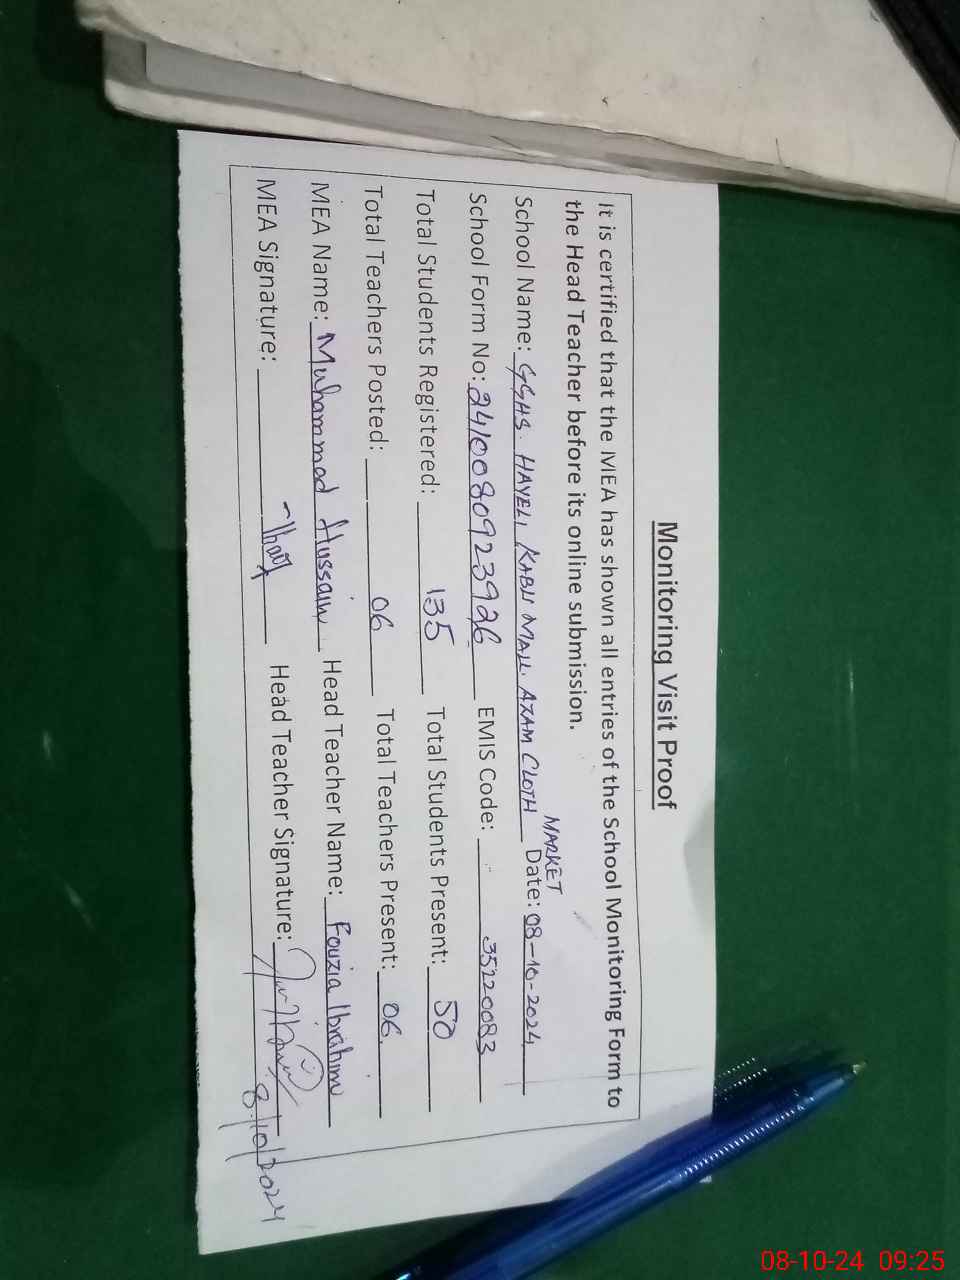 Monitoring Visit Proof
It is certified that the MEA has shown all entries of the School Monitoring Form to
the Head Teacher before its online submission.
MARKET
School Name: GGHS. HAVELI KABLI MALL. AZAM CLOTH Date: 08-10-2024
School Form No: 2410080923926 EMIS Code: 35220083
Total Students Registered: 135 Total Students Present: 50
Total Teachers Posted: 06 Total Teachers Present: 06
MEA Name: Muhammad Hussain Head Teacher Name: Fouzia Ibrahim
MEA Signature: Head Teacher Signature:
8/10/2024
08-10-24 09:25